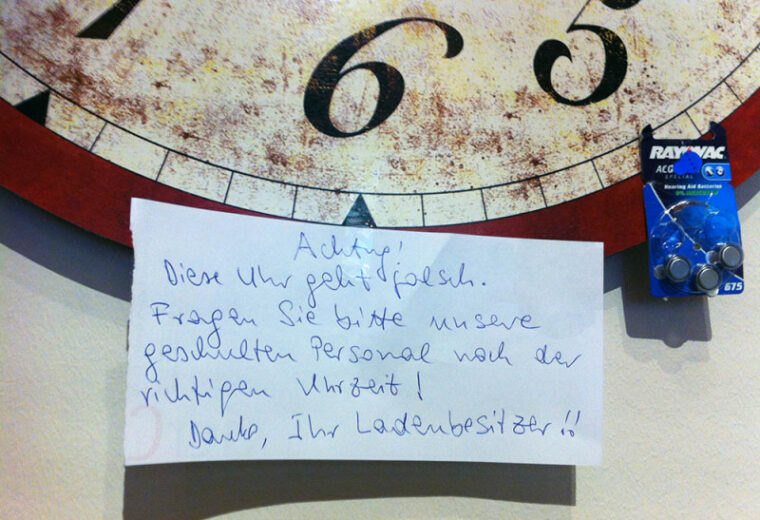 6
5
RAYOVAC
ACG
SPECIAL
Hearing Aid Batteries
675
Achtung!
Diese Uhr geht falsch.
Fragen Sie bitte unsere
geschulten Personal nach der
richtigen Uhrzeit!
Danke, Ihr Ladenbesitzer!!